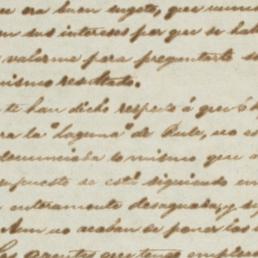 era buen sugeto, que nunca
sus intereses por que se ha
valorma para preguntarte
mismo resultado.
te han dicho respecto á que
la "laguna" de Rute, no es
denunciaba lo mismo que
supuesto se está siguiendo
enteramente desaguada, y
Aun no acaban de poner las
Los agentes que tengo emplea